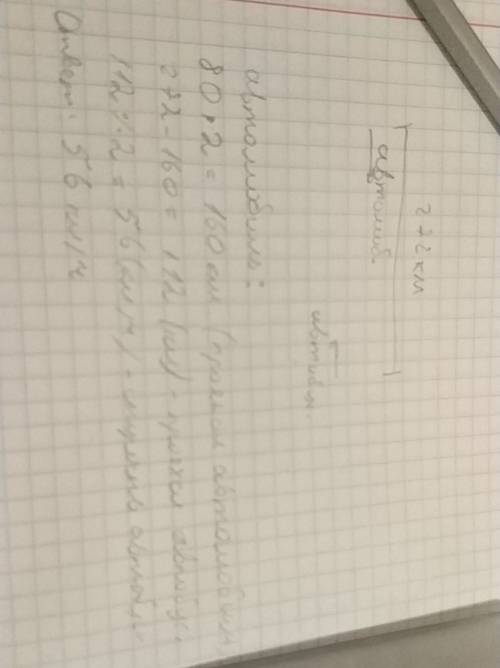 272 км
автомоб
автобус.
автомобиль:
80 · 2 = 160 км (проехал автомобиль)
272 - 160 = 112 (км) - проехал автобус
112 : 2 = 56 (км/ч) - скорость автобуса
Ответ: 56 км/ч